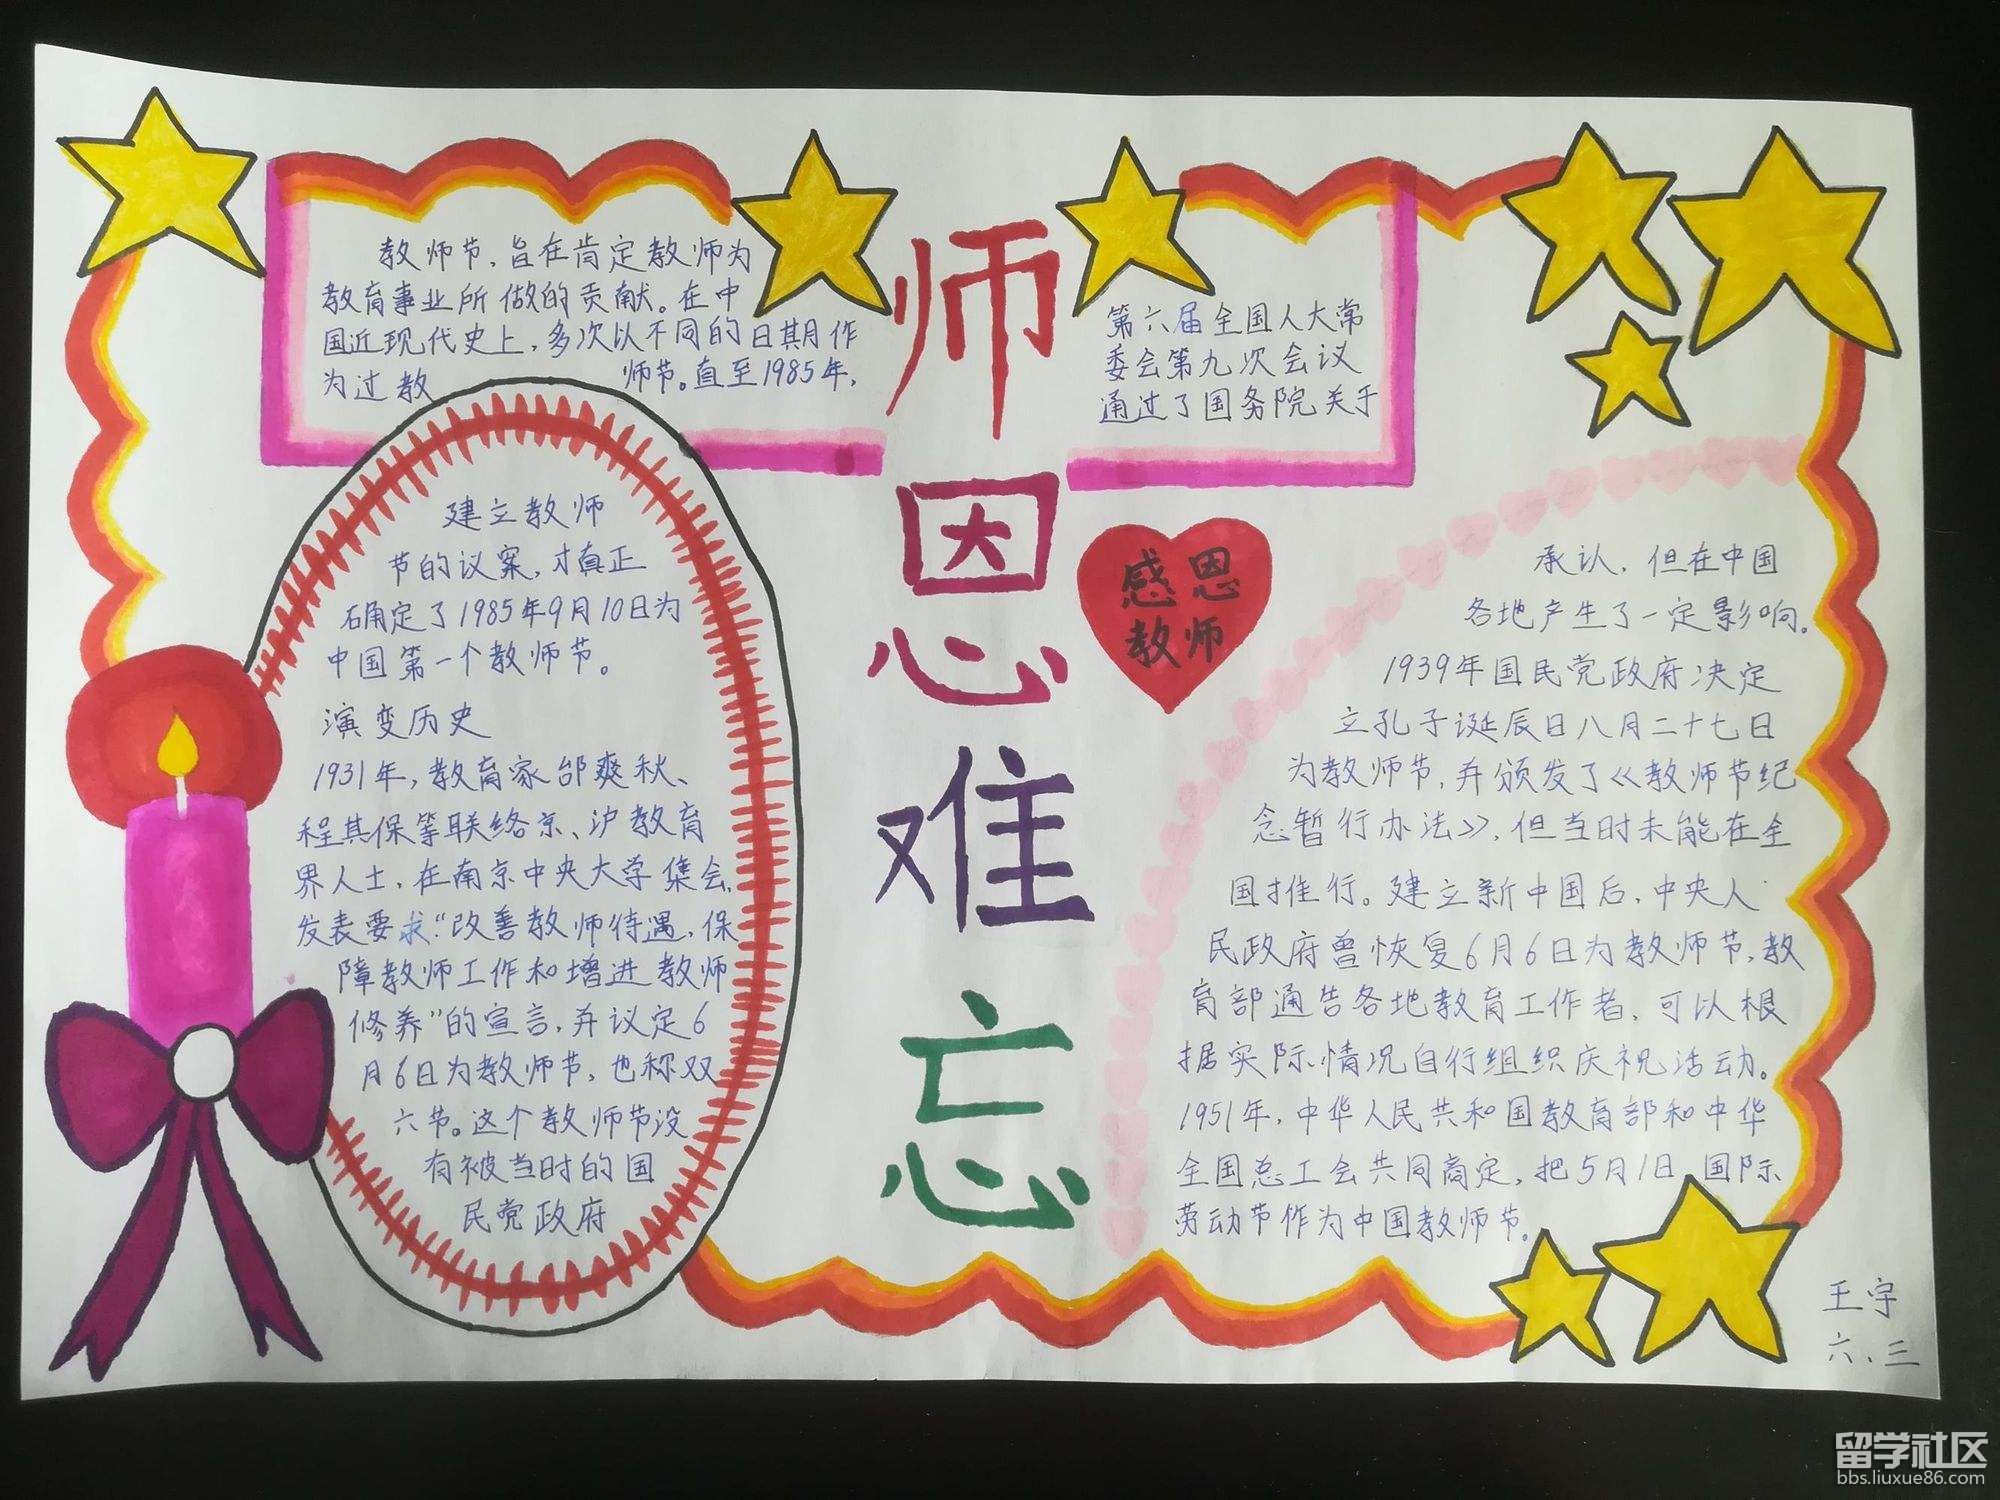 教师节，旨在肯定教师为
教育事业所做的贡献。在中
国近现代史上，多次以不同的日期作
为过教 师节。直至1985年，
第六届全国人大常
委会第九次会议
通过了国务院关于
建立教师
节的议案，才真正
确定了1985年9月10日为
中国第一个教师节。
演变历史
1931年，教育家邰爽秋、
程其保等联络京、沪教育
界人士，在南京中央大学集会，
发表要求“改善教师待遇，保
障教师工作和增进教师
修养”的宣言，并议定6
月6日为教师节，也称双
六节。这个教师节没
有被当时的国
民党政府
师恩难忘
感恩
教师
承认，但在中国
各地产生了一定影响。
1939年国民党政府决定
立孔子诞辰日八月二十七日
为教师节，并颁发了《教师节纪
念暂行办法》，但当时未能在全
国推行。建立新中国后，中央人
民政府曾恢复6月6日为教师节，教
育部通告各地教育工作者，可以根
据实际情况自行组织庆祝活动。
1951年，中华人民共和国教育部和中华
全国总工会共同商定，把5月1日国际
劳动节作为中国教师节。
王宇
六、三
留学社区
bbs.liuxue86.com